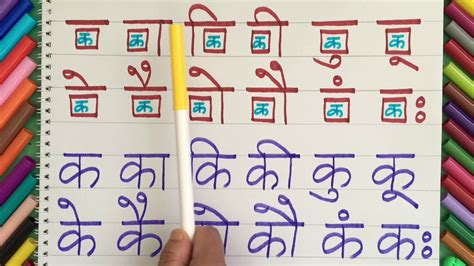 क का कि की कु कू
के कै को कौ कं कः
क का कि की कु कू
के कै को कौ कं कः